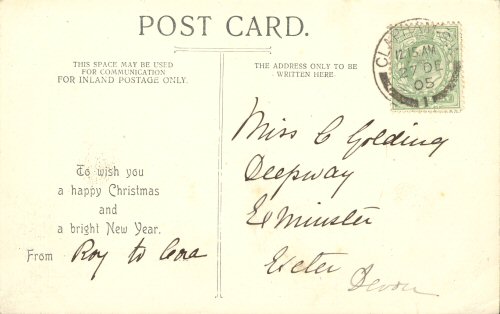 POST CARD.
THIS SPACE MAY BE USED
FOR COMMUNICATION
FOR INLAND POSTAGE ONLY.
THE ADDRESS ONLY TO BE
WRITTEN HERE.
12.15 AM
DE
05
1
To wish you
a happy Christmas
and
a bright New Year.
From Roy to Cora
Miss C Golding
Deepway
Exminster
Exeter
Devon